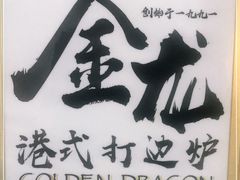 创始于一九九一
金龙
港式打边炉
GOLDEN DRAGON